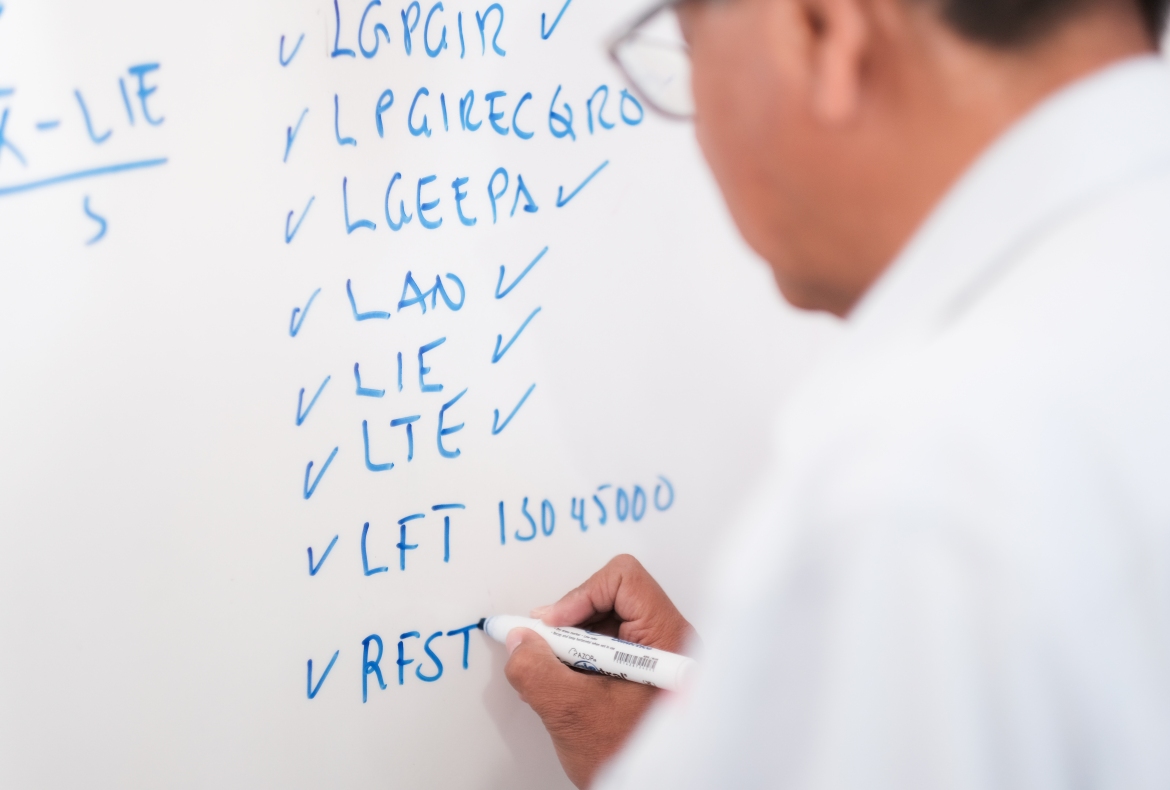 X-LIE
S
✓ LGPGIR ✓
✓ LPGIRECQRO
✓ LGEEPA ✓
✓ LAN ✓
✓ LIE ✓
✓ LTE ✓
✓ LFT ISO 45000
✓ RFST